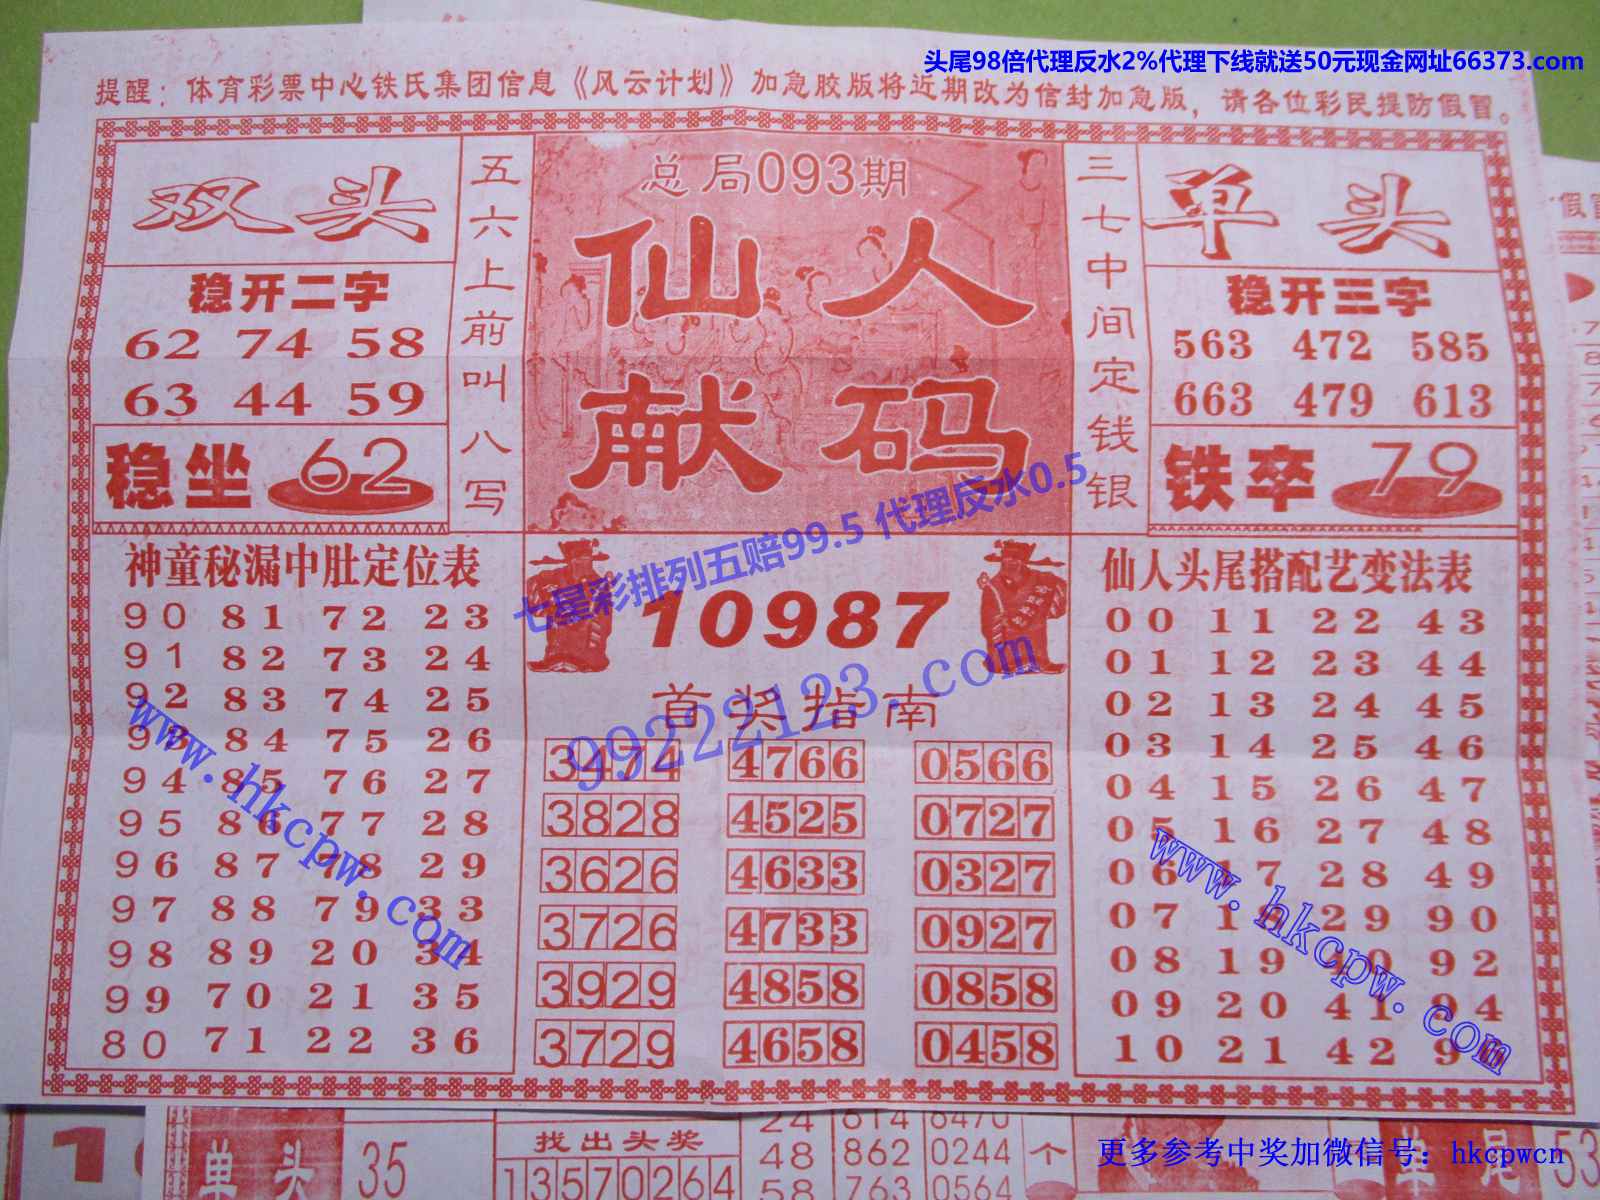 头尾98倍代理反水2%代理下线就送50元现金网址66373.com
提醒：体育彩票中心铁氏集团信息《风云计划》加急胶版将近期改为信封加急版，请各位彩民提防假冒。
双头
稳开二字
62 74 58
63 44 59
稳坐 62
五六上前叫八写
总局093期
仙人
献码
三七中间定钱银
单头
稳开三字
563 472 585
663 479 613
铁卒 79
七星彩排列五赔99.5 代理反水0.5
神童秘漏中肚定位表
90 81 72 23
91 82 73 24
92 83 74 25
93 84 75 26
94 85 76 27
95 86 77 28
96 87 78 29
97 88 79 33
98 89 20 34
99 70 21 35
80 71 22 36
www.hkcpw.com
10987
99222123.com
首奖指南
3474 4766 0566
3828 4525 0727
3626 4633 0327
3726 4733 0927
3929 4858 0858
3729 4658 0458
仙人头尾搭配艺变法表
00 11 22 43
01 12 23 44
02 13 24 45
03 14 25 46
04 15 26 47
05 16 27 48
06 17 28 49
07 18 29 90
08 19 40 92
09 20 41 94
10 21 42 9
www.hkcpw.com
单头 35
找出头奖
13570264
24 614 6470
48 862 0244
58 763 0564
个
单尾 53
更多参考中奖加微信号：hkcpwcn